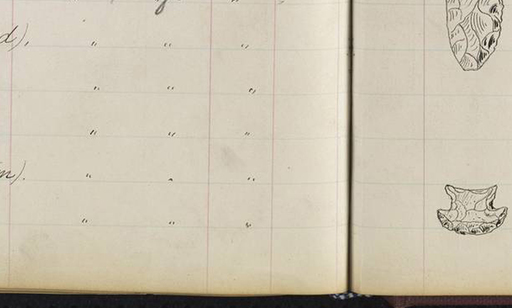 d), " " "
" " "
" " "
n). " " "
" " "